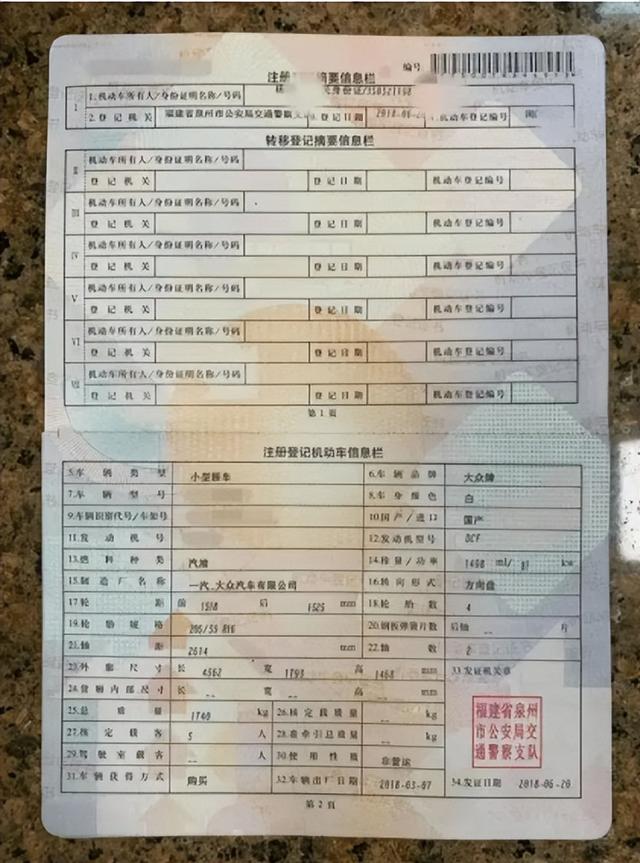 编号
注册 摘要信息栏
I 1.机动车所有人/身份证明名称/号码 身份证/350321198
2.登记机关 福建省泉州市公安局交通警察支 3.登记日期 2018-06-20 4.机动车登记编号 闽C
转移登记摘要信息栏
II 机动车所有人/身份证明名称/号码
登记机关 登记日期 机动车登记编号
III 机动车所有人/身份证明名称/号码
登记机关 登记日期 机动车登记编号
IV 机动车所有人/身份证明名称/号码
登记机关 登记日期 机动车登记编号
V 机动车所有人/身份证明名称/号码
登记机关 登记日期 机动车登记编号
VI 机动车所有人/身份证明名称/号码
登记机关 登记日期 机动车登记编号
VII 机动车所有人/身份证明名称/号码
登记机关 登记日期 机动车登记编号
第1页
注册登记机动车信息栏
5.车辆类型 小型轿车 6.车辆品牌 大众牌
7.车辆型号 8.车身颜色 白
9.车辆识别代号/车架号 10.国产/进口 国产
11.发动机号 12.发动机型号 DCF
13.燃料种类 汽油 14.排量/功率 1498 ml/ 81 kw
15.制造厂名称 一汽-大众汽车有限公司 16.转向形式 方向盘
17.轮距 前 1518 后 1525 mm 18.轮胎数 4
19.轮胎规格 205/55 R16 20.钢板弹簧片数 后轴 -- 片
21.轴距 2614 mm 22.轴数 2
23.外廓尺寸 长 4562 宽 1793 高 1468 mm 33.发证机关章
24.货厢内部尺寸 长 -- 宽 -- 高 -- mm
25.总质量 1740 kg 26.核定载质量 -- kg
27.核定载客 5 人 28.准牵引总质量 -- kg
29.驾驶室载客 -- 人 30.使用性质 非营运
福建省泉州
市公安局交
通警察支队
31.车辆获得方式 购买 32.车辆出厂日期 2018-03-07 34.发证日期 2018-06-20
第2页